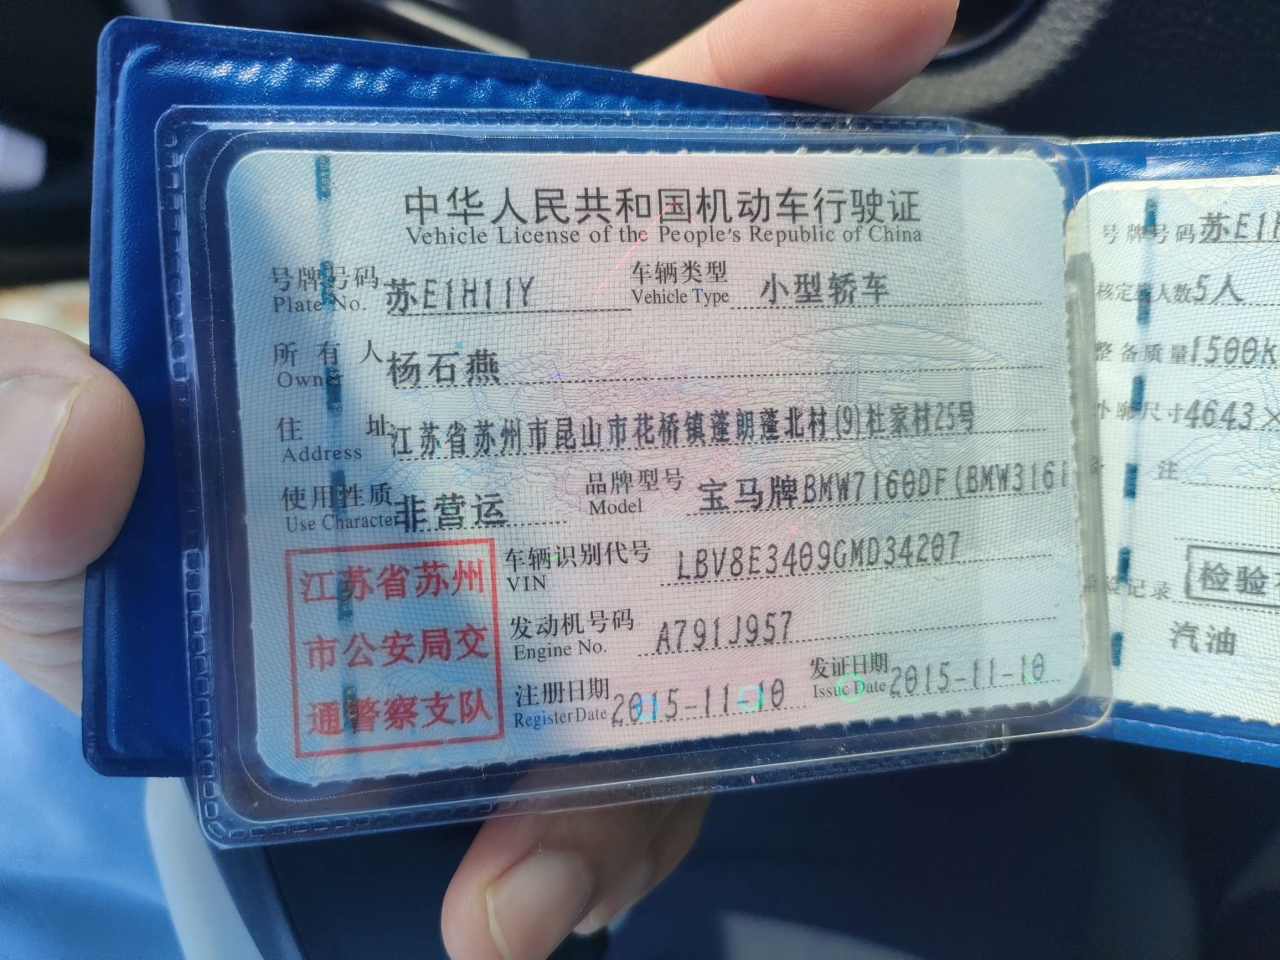 中华人民共和国机动车行驶证
Vehicle License of the People's Republic of China
号牌号码 苏E1H11Y 车辆类型 小型轿车
Plate No. Vehicle Type
所有人 杨石燕
Owner
住址 江苏省苏州市昆山市花桥镇蓬朗蓬北村(9)杜家村25号
Address
使用性质 非营运 品牌型号 宝马牌BMW7160DF(BMW316i
Use Character Model
江苏省苏州
市公安局交
通警察支队
车辆识别代号 LBV8E3409GMD34207
VIN
发动机号码 A791J957
Engine No.
注册日期 2015-11-10 发证日期 2015-11-10
Register Date Issue Date
号牌号码 苏E1H
核定载人数 5人
整备质量 1500K
外廓尺寸 4643×
注
记录 检验
汽油